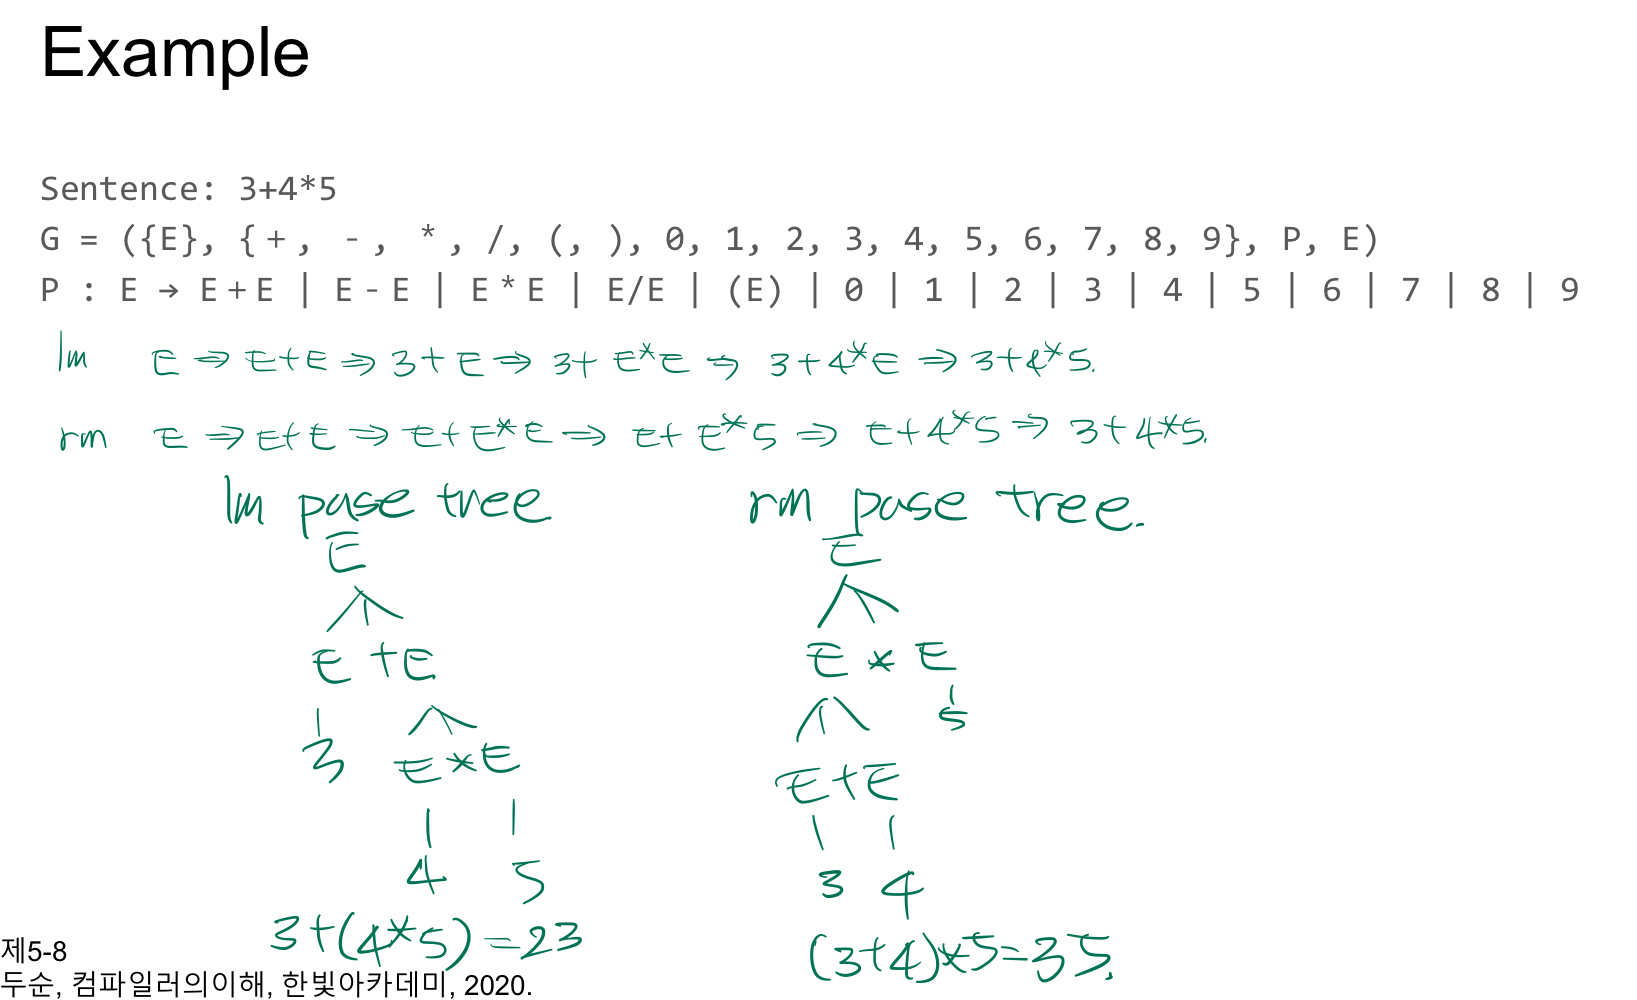 Example
Sentence: 3+4*5
G = ({E}, {+, -, *, /, (, ), 0, 1, 2, 3, 4, 5, 6, 7, 8, 9}, P, E)
P : E → E+E | E-E | E*E | E/E | (E) | 0 | 1 | 2 | 3 | 4 | 5 | 6 | 7 | 8 | 9
lm E ⇒ E+E ⇒ 3+E ⇒ 3+E*E ⇒ 3+4*E ⇒ 3+4*5.
rm E ⇒ E+E ⇒ E+E*E ⇒ E+E*5 ⇒ E+4*5 ⇒ 3+4*5.
lm pase tree rm pase tree.
E E
E +E E * E
3 E*E 5
E+E
4 5 3 4
3+(4*5)=23 (3+4)*5=35.
제5-8
두순, 컴파일러의이해, 한빛아카데미, 2020.